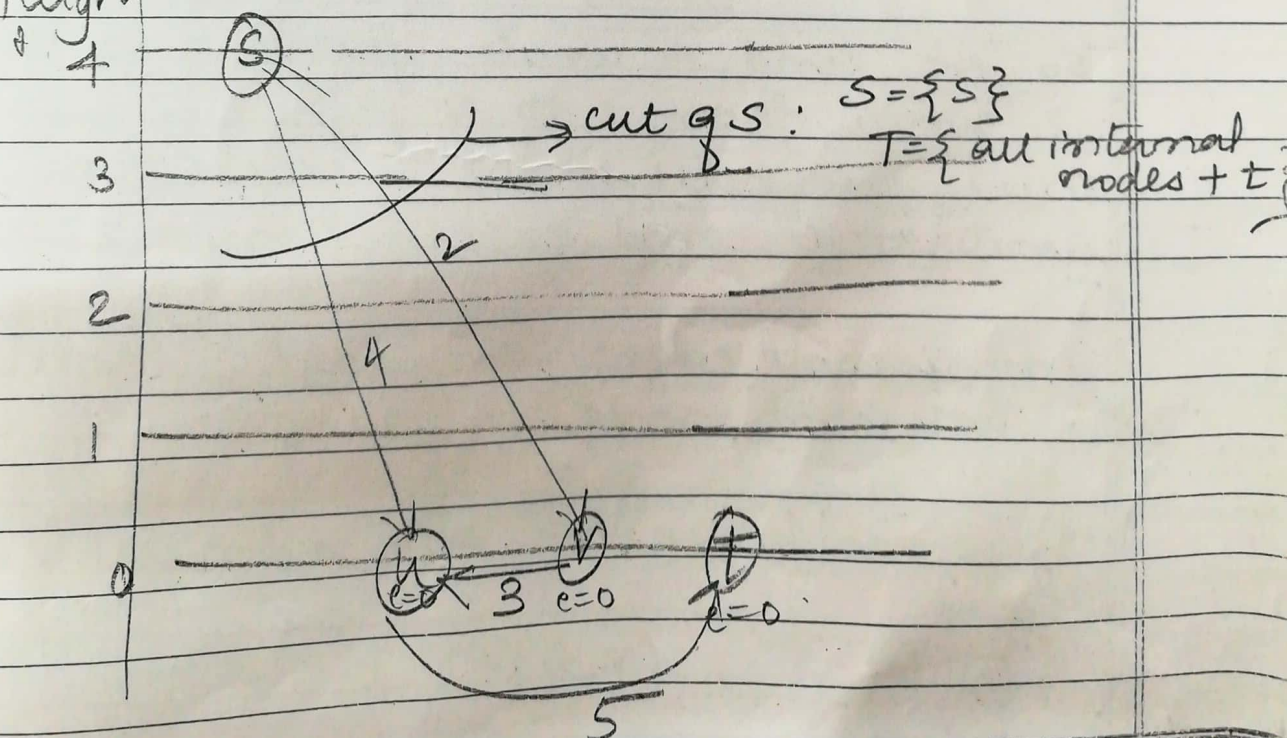 4
S
cut of S :
S={S}
T={ all internal
nodes + t
3
2
2
4
1
0
u
e=0
3
v
e=0
t
e=0
5